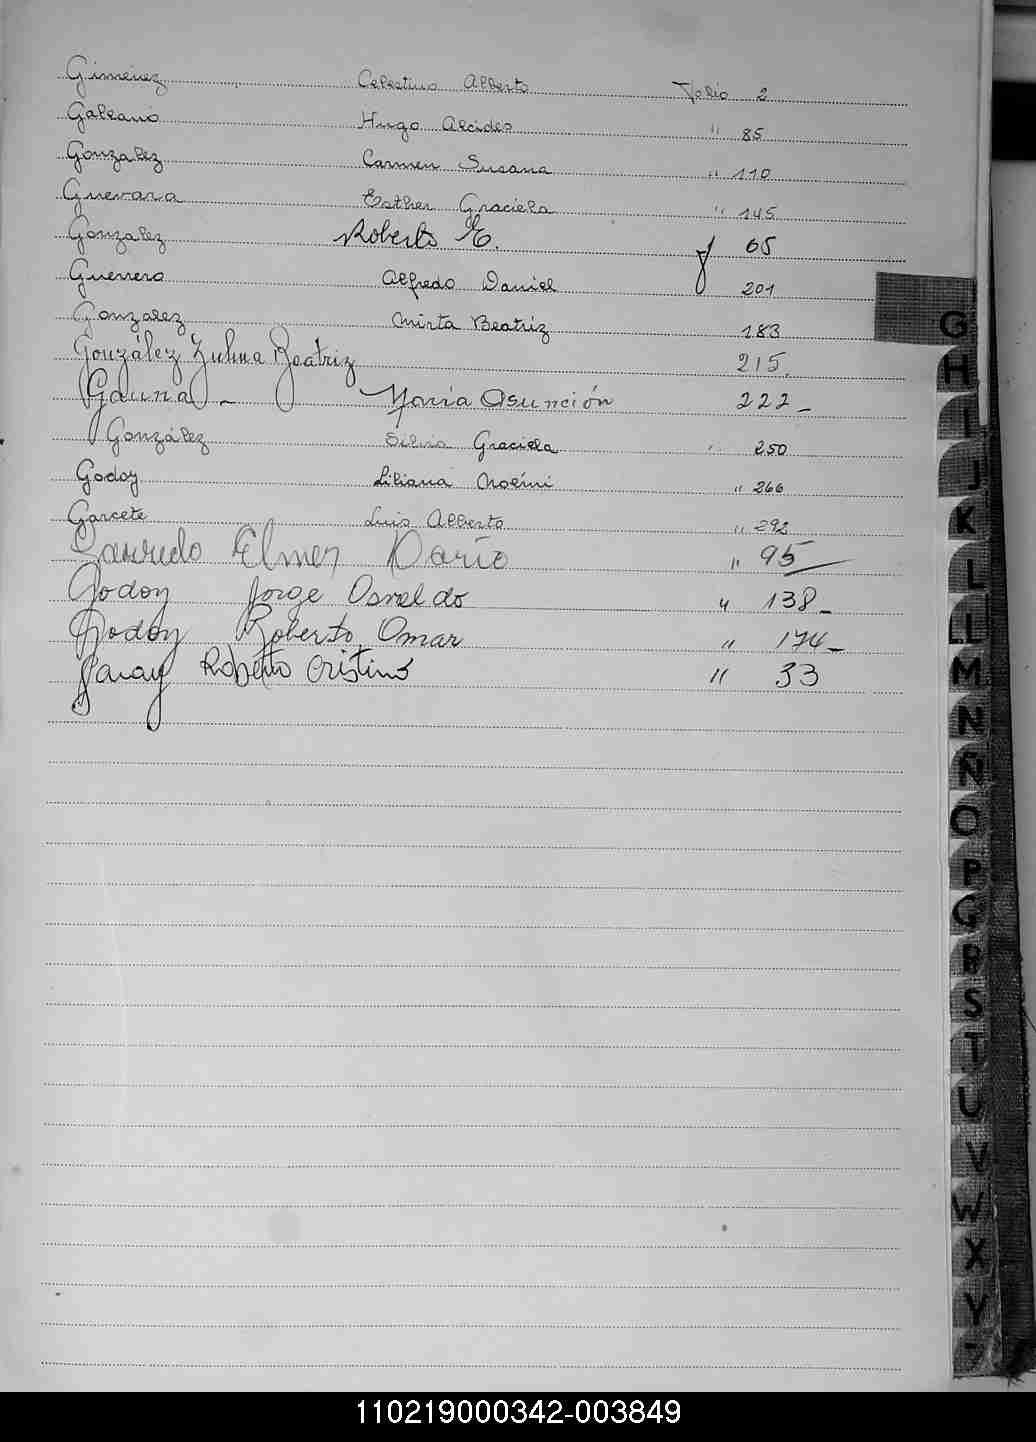 Giménez Celestino Alberto Folio 2
Galeano Hugo Alcides " 85
Gonzalez Carmen Susana " 110
Guevara Esther Graciela " 145
Gonzalez Roberto E. f 65
Guerrero Alfredo Daniel 201
Gonzalez Mirta Beatriz 183
González Zulma Beatriz 215.
Gauna - María Asunción 222-
González Silvia Graciela " 250
Godoy Liliana Noémi " 266
Garcete Luis Alberto " 292
Elmer Darío " 95
Godoy Jorge Osvaldo " 138-
Godoy Roberto Omar " 174-
Garay Roberto Cristino " 33
G
H
I
J
K
L
LL
M
N
Ñ
O
P
Q
R
S
T
U
V
W
X
Y
110219000342-003849